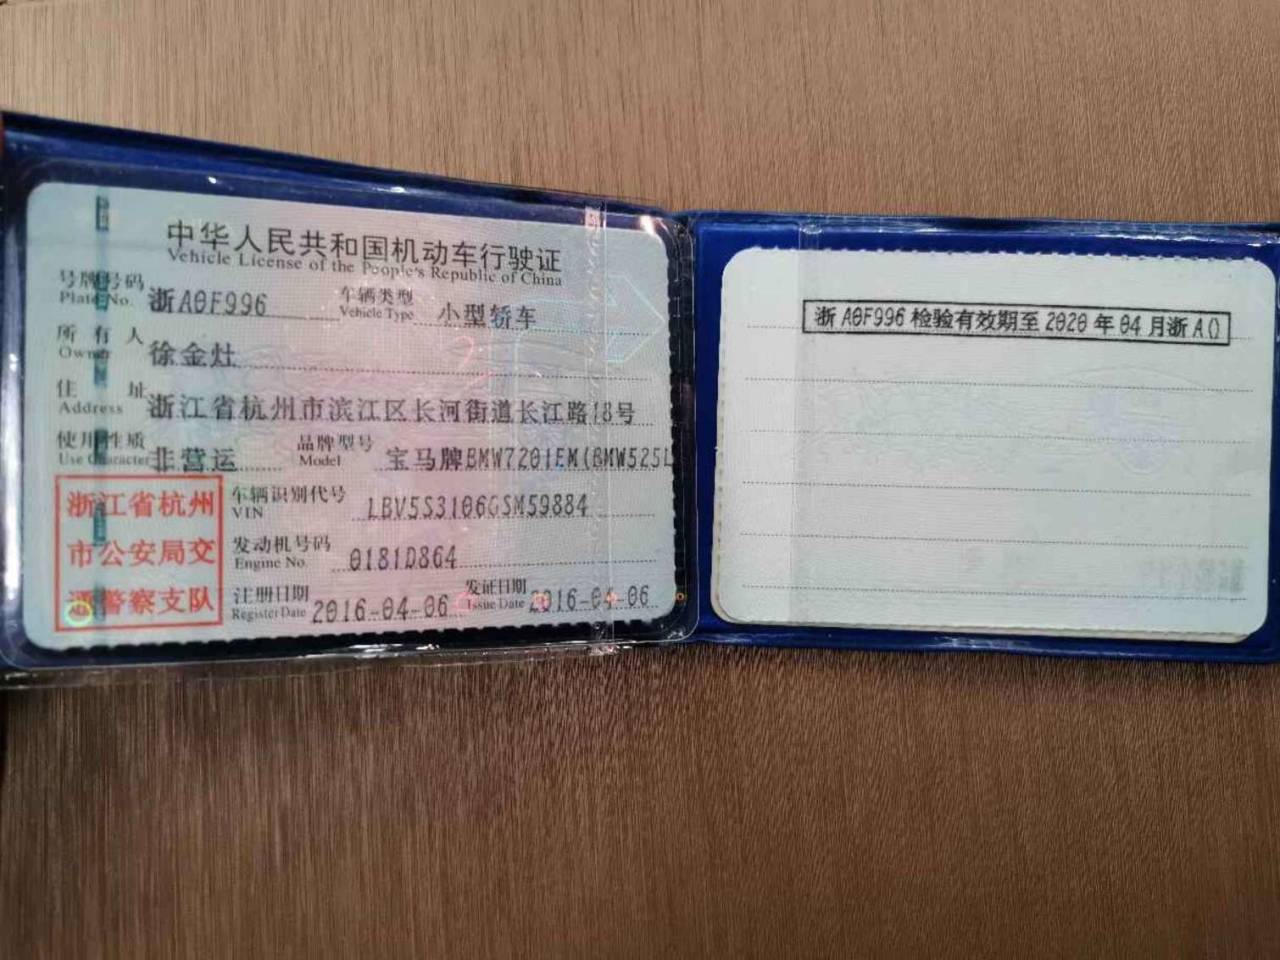 中华人民共和国机动车行驶证
Vehicle License of the People's Republic of China
号牌号码 浙A0F996 车辆类型 小型轿车
Plate No. Vehicle Type
所有人 徐金灶
Owner
住址 浙江省杭州市滨江区长河街道长江路18号
Address
使用性质 非营运 品牌型号 宝马牌BMW7201EM(BMW525L
Use Character Model
浙江省杭州
市公安局交
通警察支队
车辆识别代号 LBV5S3106GSM59884
VIN
发动机号码 0181D864
Engine No.
注册日期 2016-04-06 发证日期 2016-04-06
Register Date Issue Date
浙A0F996检验有效期至2020年04月浙A()